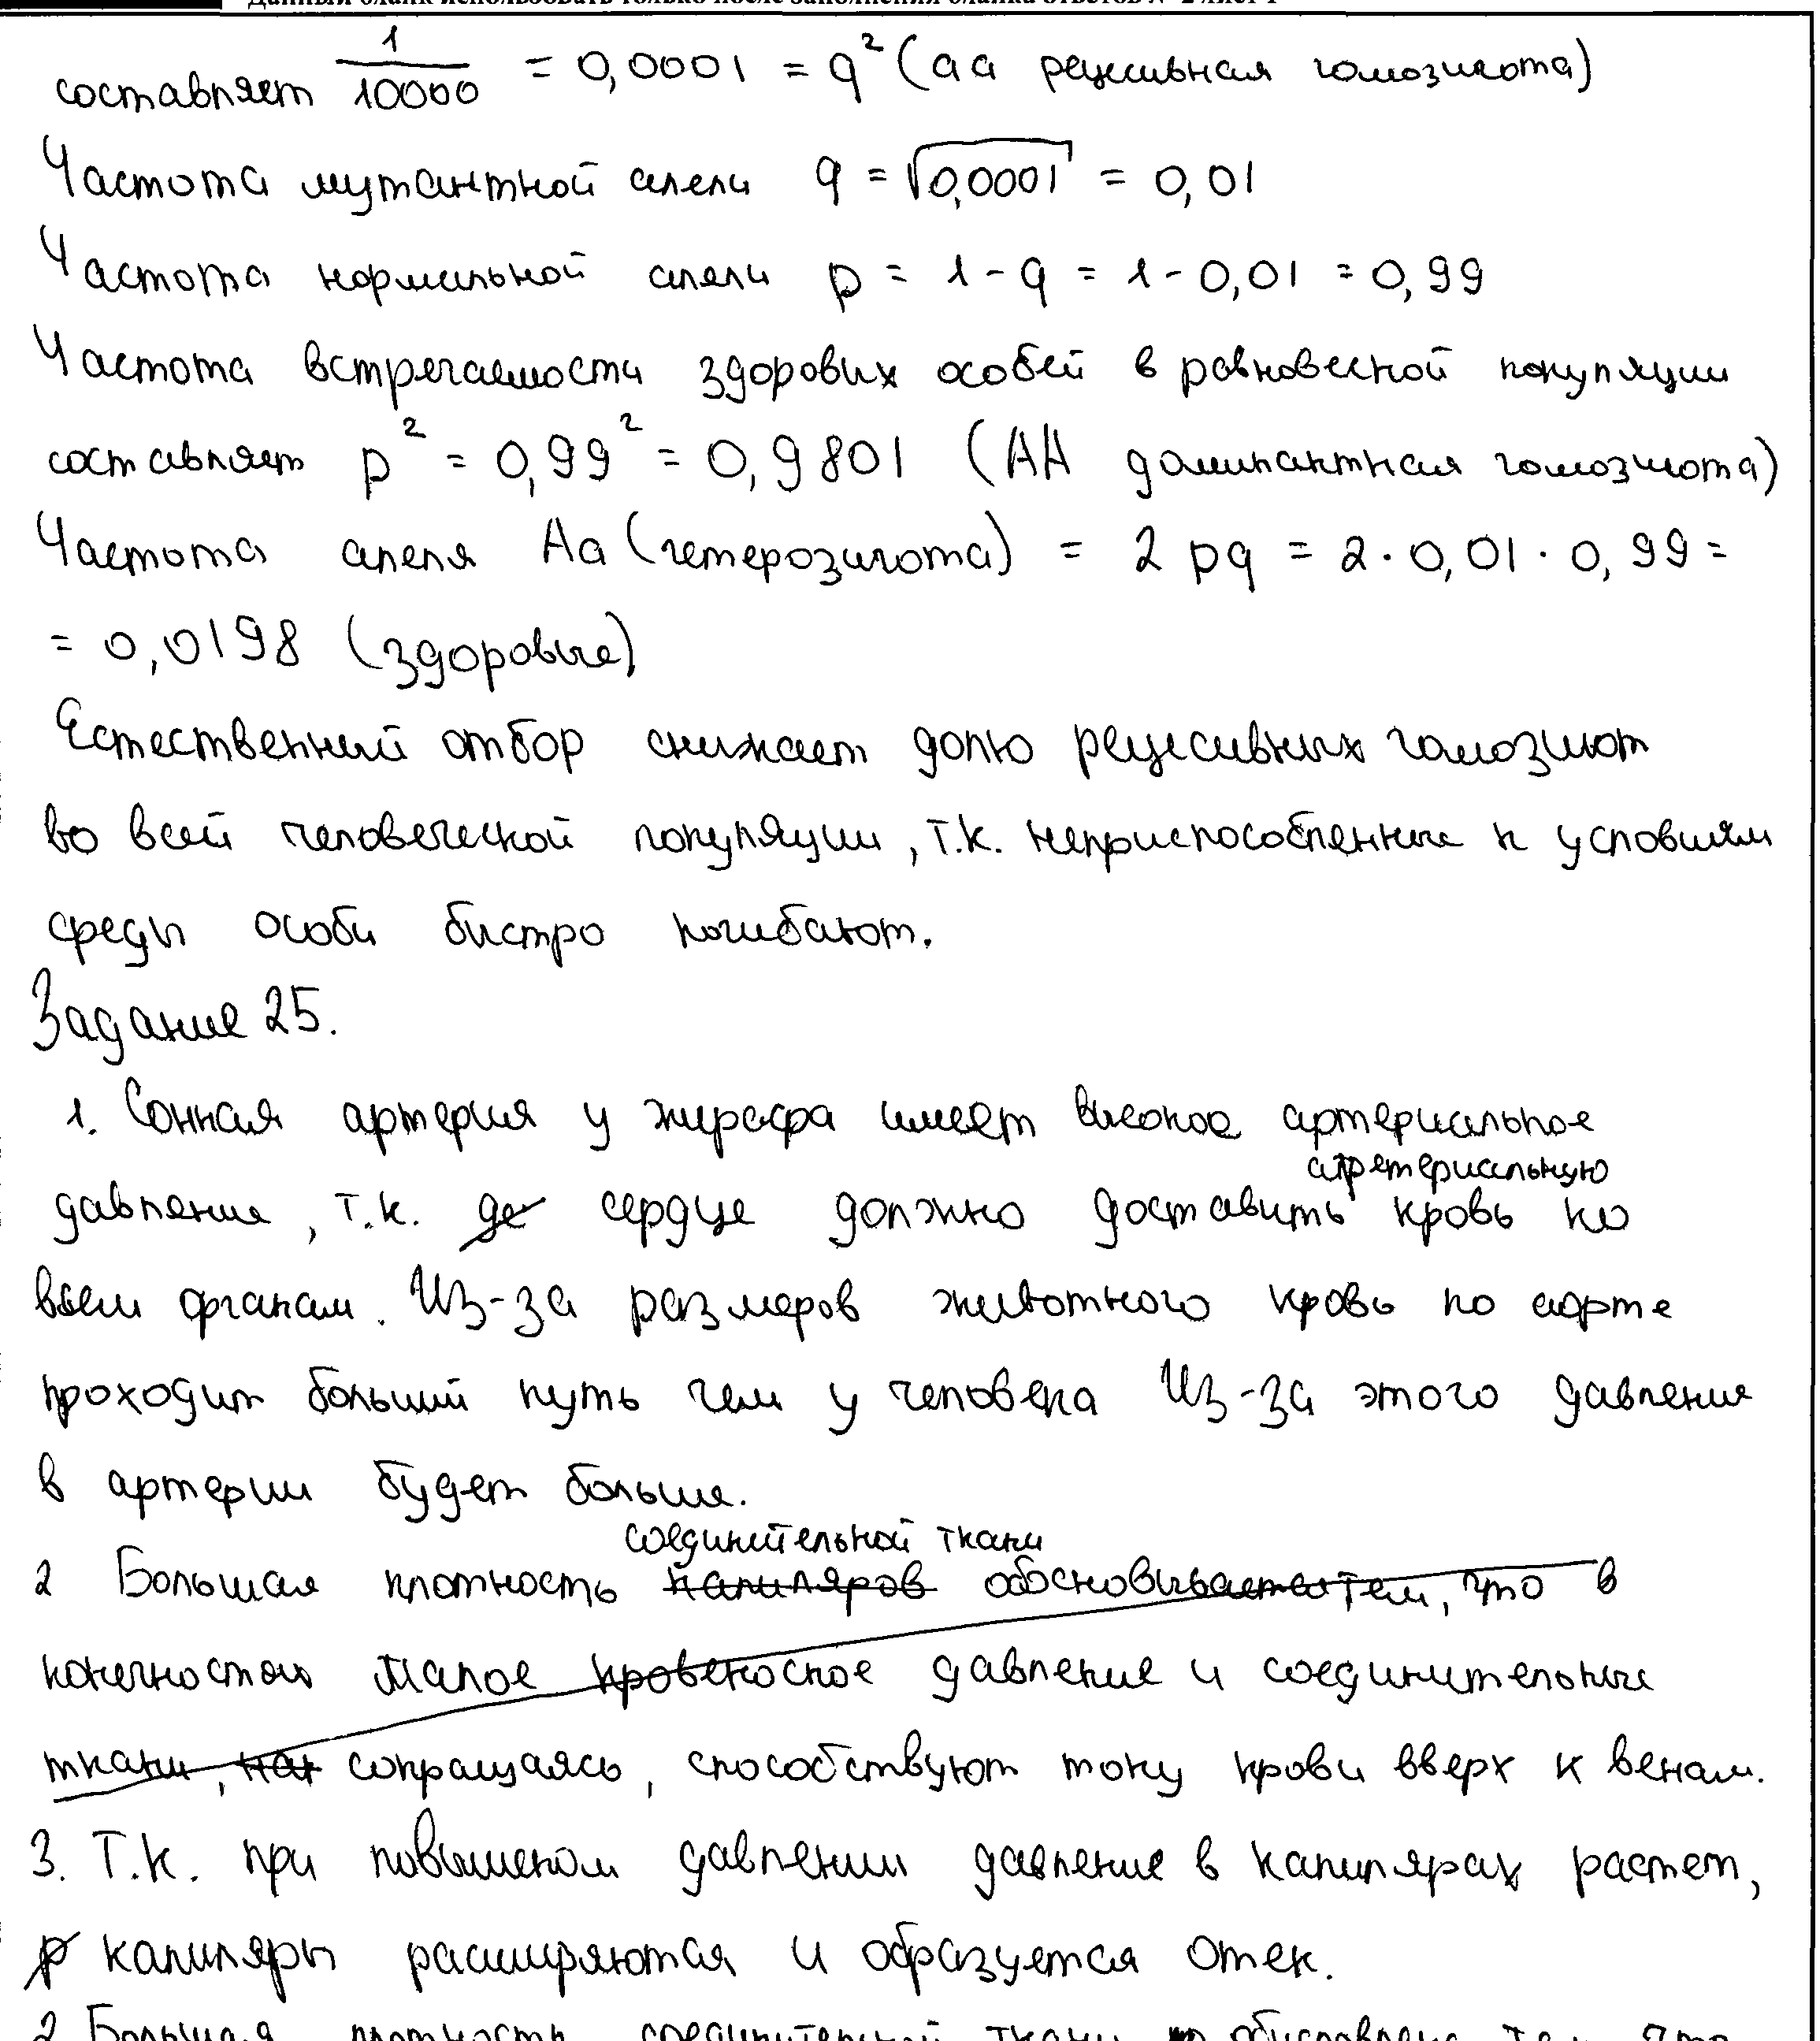 Данный бланк использовать только после заполнения бланка ответов № 2 лист 1
составляет 1/10000 = 0,0001 = q² (аа рецесивная гомозигота)
Частота мутантной алели q = √0,0001 = 0,01
Частота нормальной алели p = 1 - q = 1 - 0,01 = 0,99
Частота встречаемости здоровых особей в равновесной популяции
составляет p² = 0,99² = 0,9801 (АА доминантная гомозигота)
Частота алеля Аа (гетерозигота) = 2 pq = 2 · 0,01 · 0,99 =
= 0,0198 (здоровые)
Естественний отбор снижает долю рецесивных гомозигот
во всей человеческой популяции, т.к. неприспособленные к условиям
среды особи быстро погибают.
Задание 25.
1. Сонная артерия у жирафа имеет высокое артериальное
артериальную
давление, т.к. де сердце должно доставить кровь ко
всем органам. Из-за размеров животного кровь по аорте
проходит больший путь чем у человека Из-за этого давление
в артерии будет больше.
соединительной ткани
2 Большая плотность капиляров обосновывается тем, что в
конечностях малое кровеносное давление и соединительные
ткани, как сокращаясь, способствуют току крови вверх к венам.
3. Т.к. при повышеном давлении давление в капилярах растет,
р капиляры расширяются и образуется отек.
2 Большая плотность соединительной ткани обусловлена тем, что